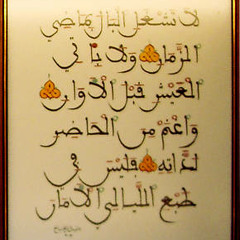 لا تشغل البال بماضي
الزمان ولا بآتي
العيش قبل الأوان
واغنم من الحاضر
لذاته فليس في
طبع الليالي الأمان